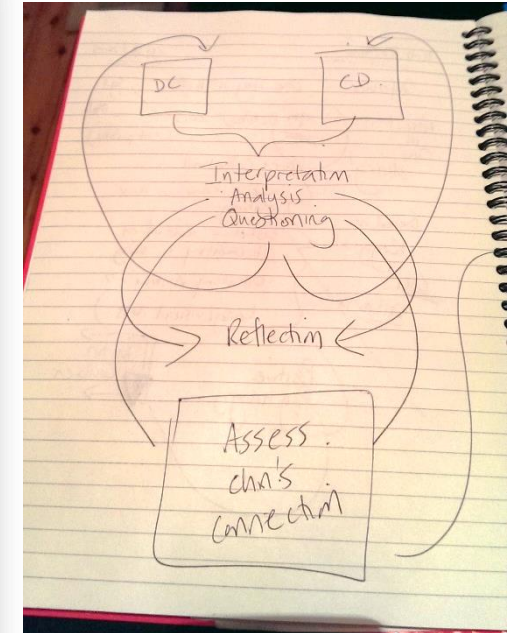 DC
CD.
Interpretation
Analysis
Questioning
Reflection
Assess.
chn's
connection